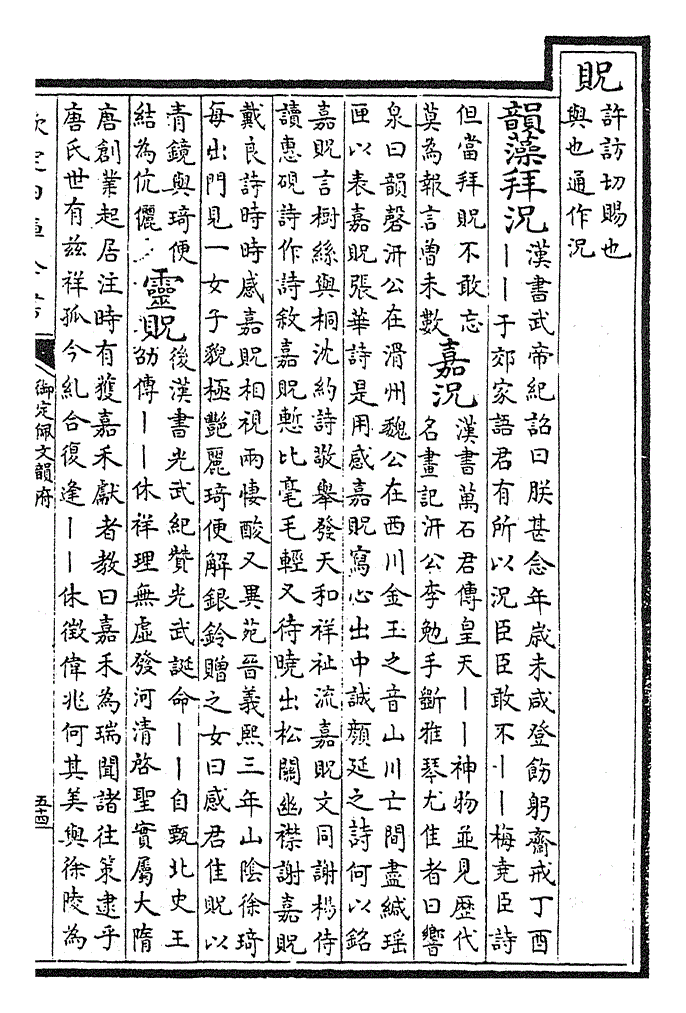 貺
許訪切賜也
與也通作況
韻藻拜況
漢書武帝紀詔曰朕甚念年嵗未咸登飭躬齋戒丁酉
丨丨于郊家語君有所以況臣臣敢不丨丨梅堯臣詩
但當拜貺不敢忘
莫為報言曾未數
嘉況
漢書萬石君傳皇天丨丨神物並見歴代
名畫記汧公李勉手斲雅琴尤佳者曰響
泉曰韻磬汧公在滑州魏公在西川金玉之音山川亡間盡緘瑶
匣以表嘉貺張華詩是用感嘉貺寫心出中誠顔延之詩何以銘
嘉貺言樹絲與桐沈約詩敬舉發天和祥祉流嘉貺文同謝楊侍
讀惠硯詩作詩敘嘉貺慙比毫毛輕又待曉出松關幽襟謝嘉貺
戴良詩時時感嘉貺相視兩悽酸又異苑晉義熙三年山陰徐琦
每出門見一女子貌極艷麗琦便解銀鈴贈之女曰感君佳貺以
青鏡與琦便
結為伉儷
靈貺
後漢書光武紀贊光武誕命丨丨自甄北史王
劭傳丨丨休祥理無虚發河清啓聖實屬大隋
唐創業起居注時有獲嘉禾獻者教曰嘉禾為瑞聞諸往策逮乎
唐氏世有兹祥孤今糺合復逢丨丨休徵偉兆何其美與徐陵為
欽定四庫全書
御定佩文韻府
五十四